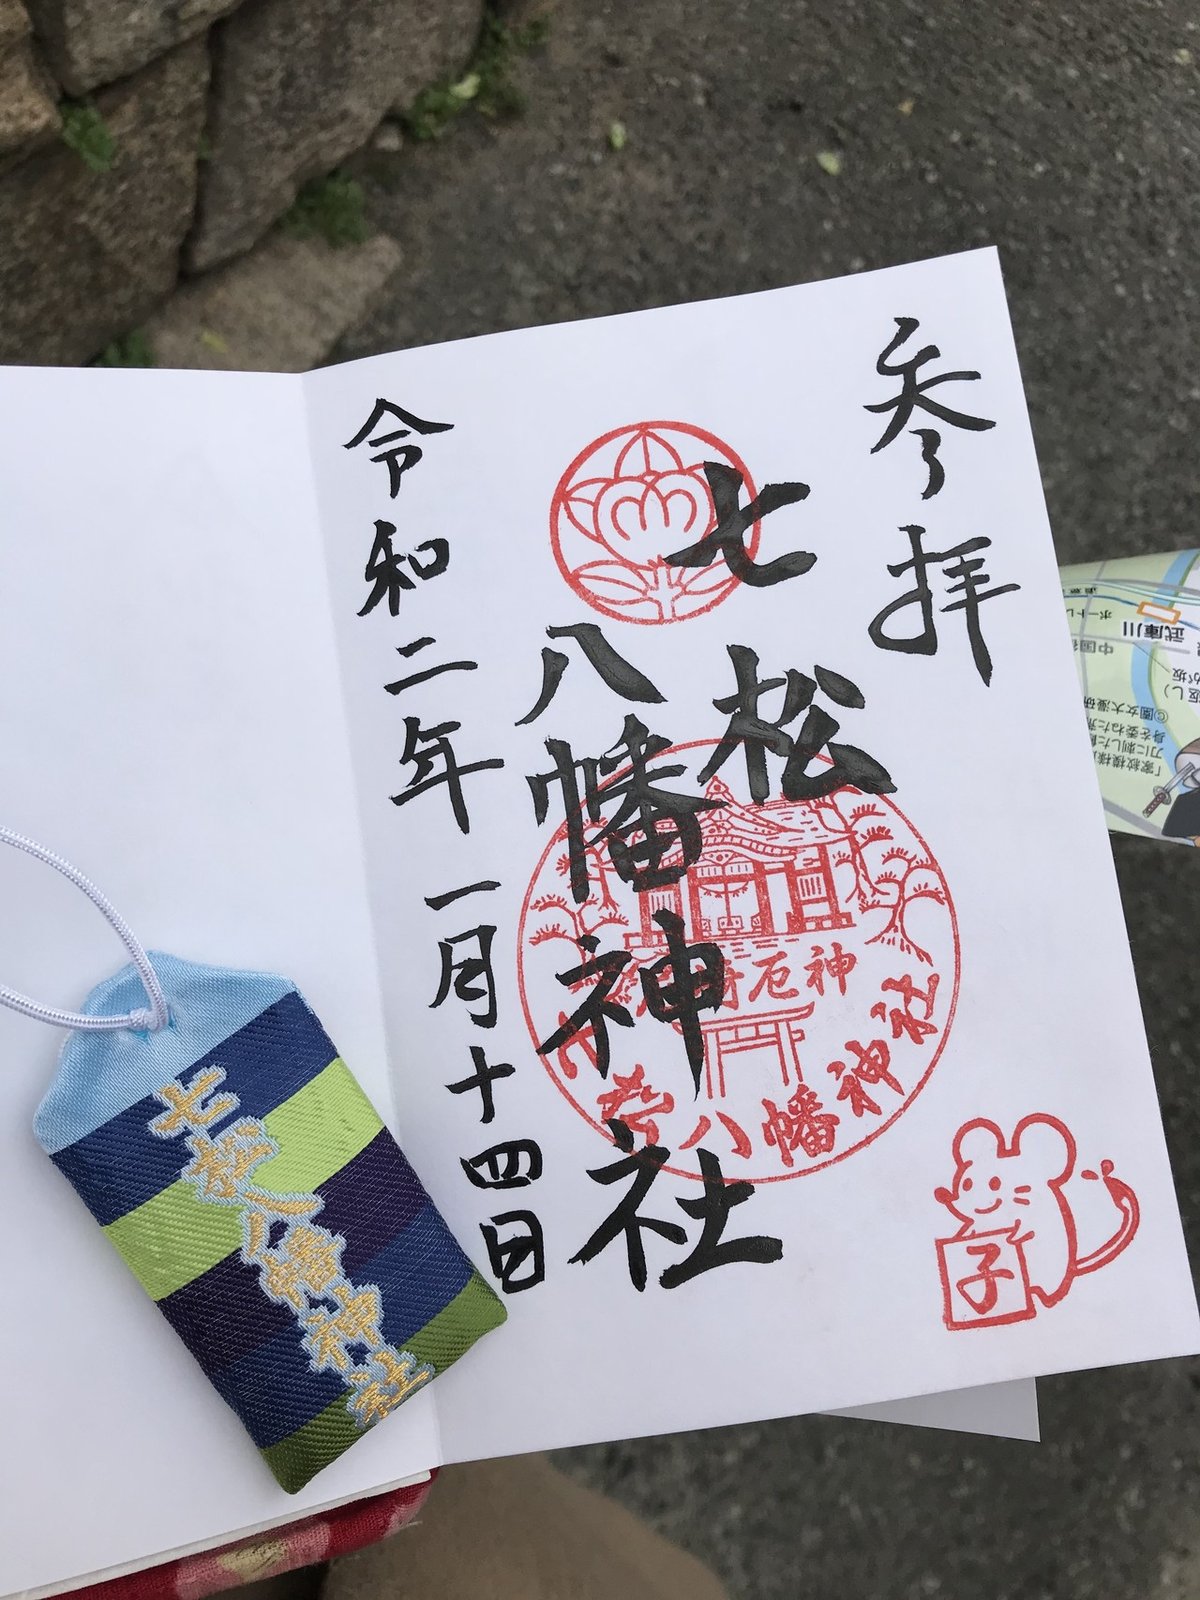 参拝
七松
八幡神社
令和二年一月十四日
厄神
七松八幡神社
子
七松八幡神社
武庫川
中国